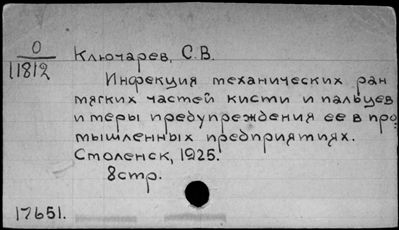 О
11812
Ключарев, С.В.
Инфекция механических ран
мягких частей кисти и пальцев
и меры предупреждения ее в про-
мышленных предприятиях.
Смоленск, 1925.
8стр.
17651.